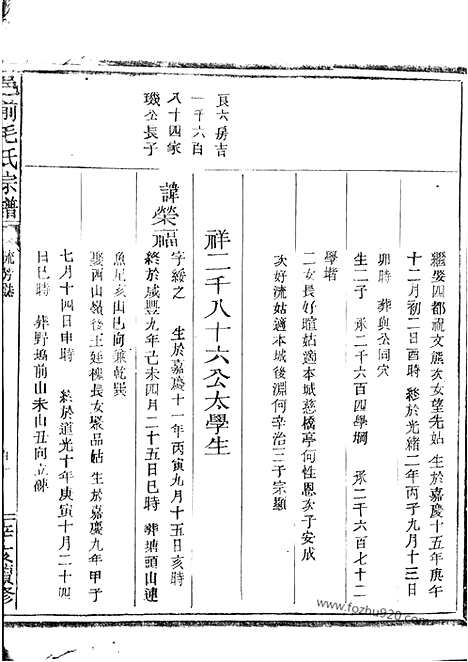 繼娶四都祝文熊次女望先姑 生於嘉慶十五年庚午
十二月初二日酉時 終於光緒二年丙子九月十三日
卯時 葬與公同穴
生二子 承二千六百四學堈 承二千六百七十二
學堦
二女長好暄姑適本城慈橋亭何性恩次子安成
次好流姑適本城後淵何辛治三子宗顯
祥二千八十六公太學生
良六房吉
一千六百
八十四家
璣公長子
諱榮福
字綏之 生於嘉慶十一年丙寅九月十五日亥時
終於咸豐九年己未四月二十五日巳時 葬塘頭山連
魚尾亥山巳向兼乾巽
娶西山嶺後王廷樓長女翠品姑 生於嘉慶九年甲子
七月十四日申時 終於道光十年庚寅十月二十四
日巳時 葬野塢前山未山丑向立碑
邑前毛氏宗譜
流芳誌
辛亥續修
www.fozhu920.com